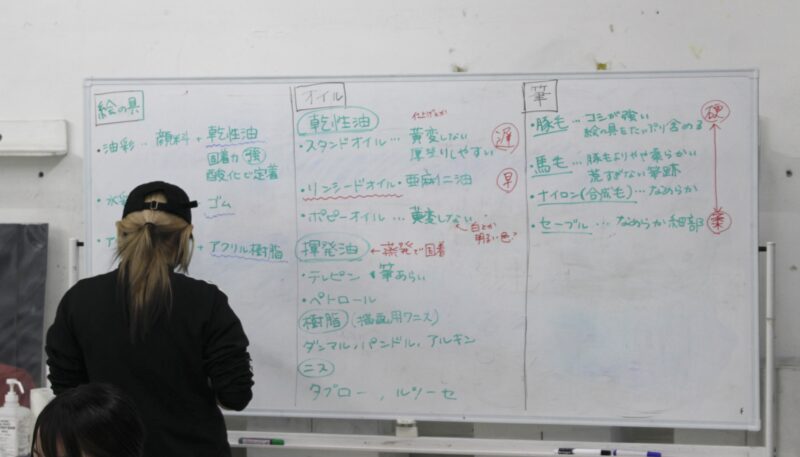 絵の具
・油彩… 顔料 + 乾性油
固着力 強
酸化で定着
・水彩
ゴム
・ア
+ アクリル樹脂
オイル
乾性油
・スタンドオイル… 黄変しない 遅
厚塗りしやすい
・リンシードオイル・亜麻仁油 早
・ポピーオイル… 黄変しない
←白とか
明るい色
揮発油 ←蒸発で固着
・テレピン 筆あらい
・ペトロール
樹脂 (描画用ワニス)
ダンマル、パンドル、アルキン
ニス
タブロー、ルツーセ
筆
・豚毛…コシが強い 硬
絵の具をたっぷり含める
・馬毛…豚毛よりやや柔らかい
荒すぎない筆跡
・ナイロン(合成毛)…なめらか
・セーブル…なめらか細部 柔